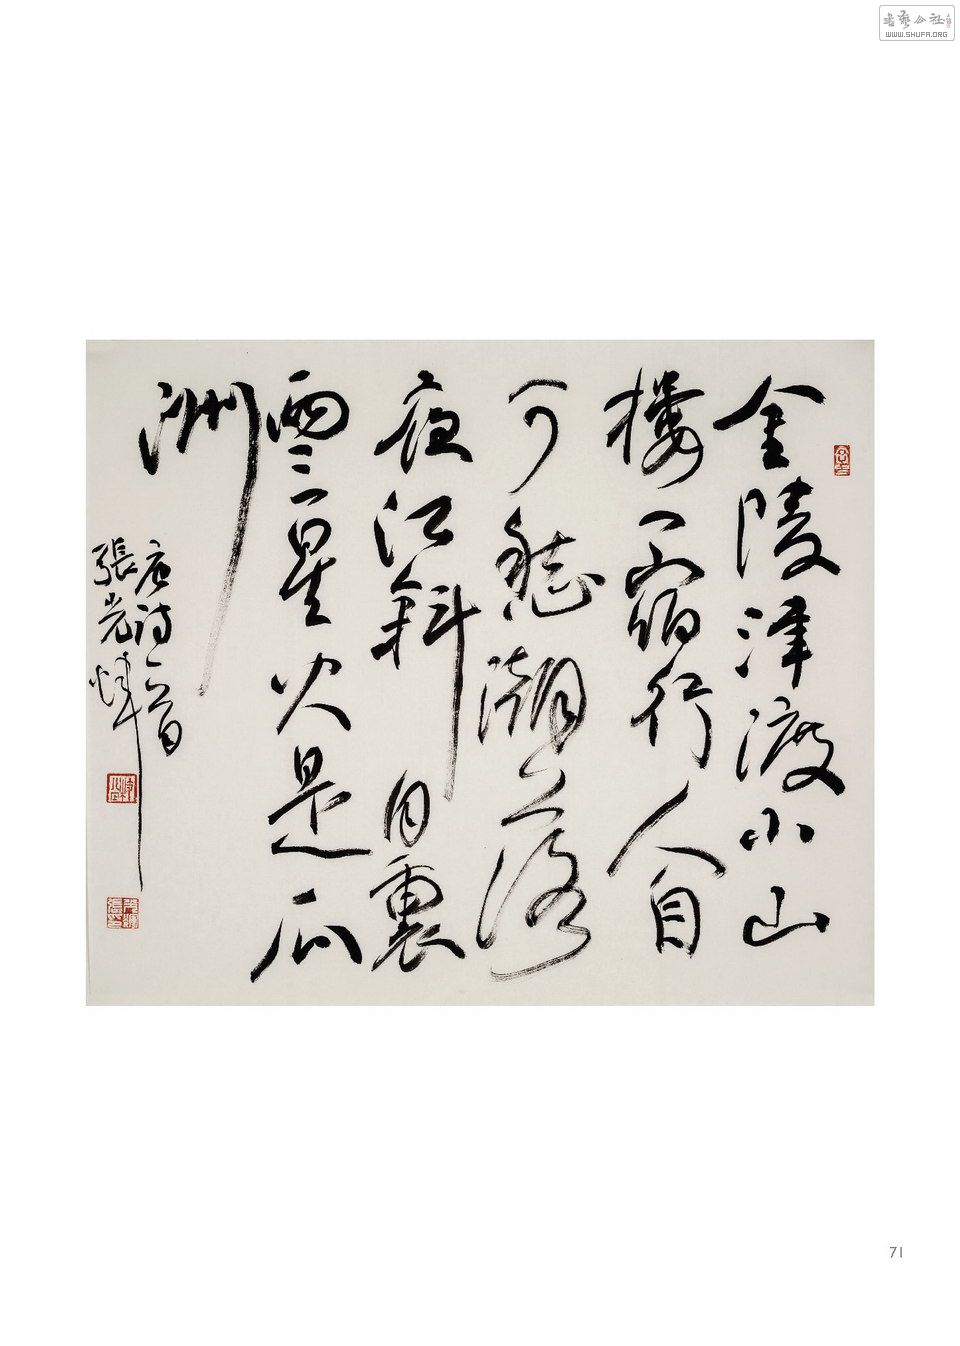 書藝公社
WWW.SHUFA.ORG
金陵津渡小山
樓一宿行人自
可愁潮落
夜江斜月裏
兩三星火是瓜
洲
唐诗一首
張光
71